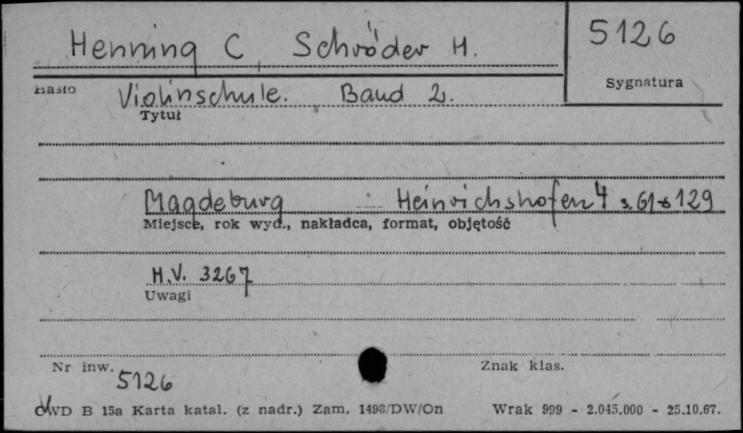 Henning C, Schröder H.
5126
Sygnatura
Hasło
Violinschule. Band 2.
Tytuł
Magdeburg Heinrichshofen 4 s. 61-129
Miejsce, rok wyd., nakładca, format, objętość
H.V. 3267
Uwagi
Nr inw. 5126
Znak klas.
CWD B 15a Karta katal. (z nadr.) Zam. 1498/DW/On Wrak 999 - 2.045.000 - 25.10.67.